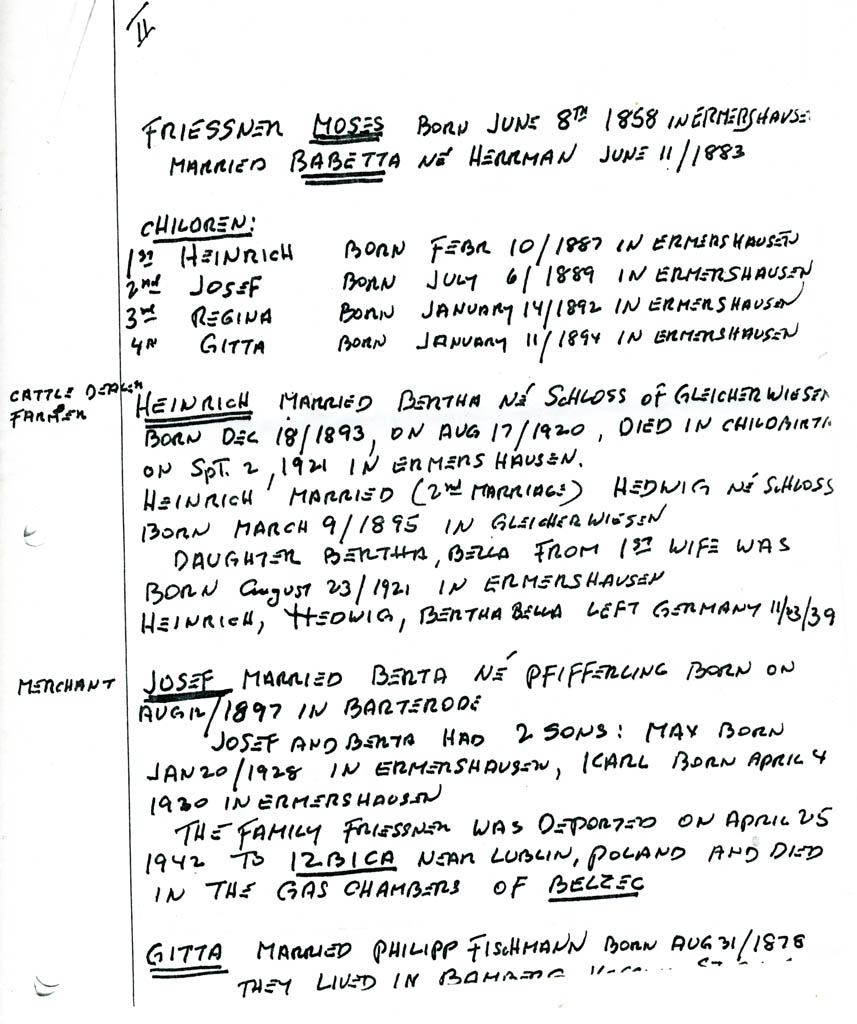 11
FRIESSNER MOSES BORN JUNE 8TH 1858 IN ERMERSHAUSE
MARRIED BABETTA NÉ HERRMAN JUNE 11/1883
CHILDREN:
1ST HEINRICH BORN FEBR 10/1887 IN ERMERSHAUSEN
2nd JOSEF BORN JULY 6/1889 IN ERMERSHAUSEN
3rd REGINA BORN JANUARY 14/1892 IN ERMERSHAUSEN
4th GITTA BORN JANUARY 11/1894 IN ERMERSHAUSEN
CATTLE DEALER
FARMER
HEINRICH MARRIED BERTHA NÉ SCHLOSS OF GLEICHERWIESEN
BORN DEC 18/1893, ON AUG 17/1920, DIED IN CHILDBIRTH
ON SPT. 2, 1921 IN ERMERSHAUSEN.
HEINRICH MARRIED (2nd MARRIAGE) HEDWIG NÉ SCHLOSS
BORN MARCH 9/1895 IN GLEICHERWIESEN
DAUGHTER BERTHA, BELLA FROM 1ST WIFE WAS
BORN August 23/1921 IN ERMERSHAUSEN
HEINRICH, HEDWIG, BERTHA BELLA LEFT GERMANY 11/23/39
MERCHANT
JOSEF MARRIED BERTA NÉ PFIFFERLING BORN ON
AUG 12/1897 IN BARTERODE
JOSEF AND BERTA HAD 2 SONS: MAX BORN
JAN 20/1928 IN ERMERSHAUSEN, KARL BORN APRIL 4
1930 IN ERMERSHAUSEN
THE FAMILY FRIESSNER WAS DEPORTED ON APRIL 25
1942 TO IZBICA NEAR LUBLIN, POLAND AND DIED
IN THE GAS CHAMBERS OF BELZEC
GITTA MARRIED PHILIPP FISCHMANN BORN AUG 31/1878
THEY LIVED IN BAMBERG